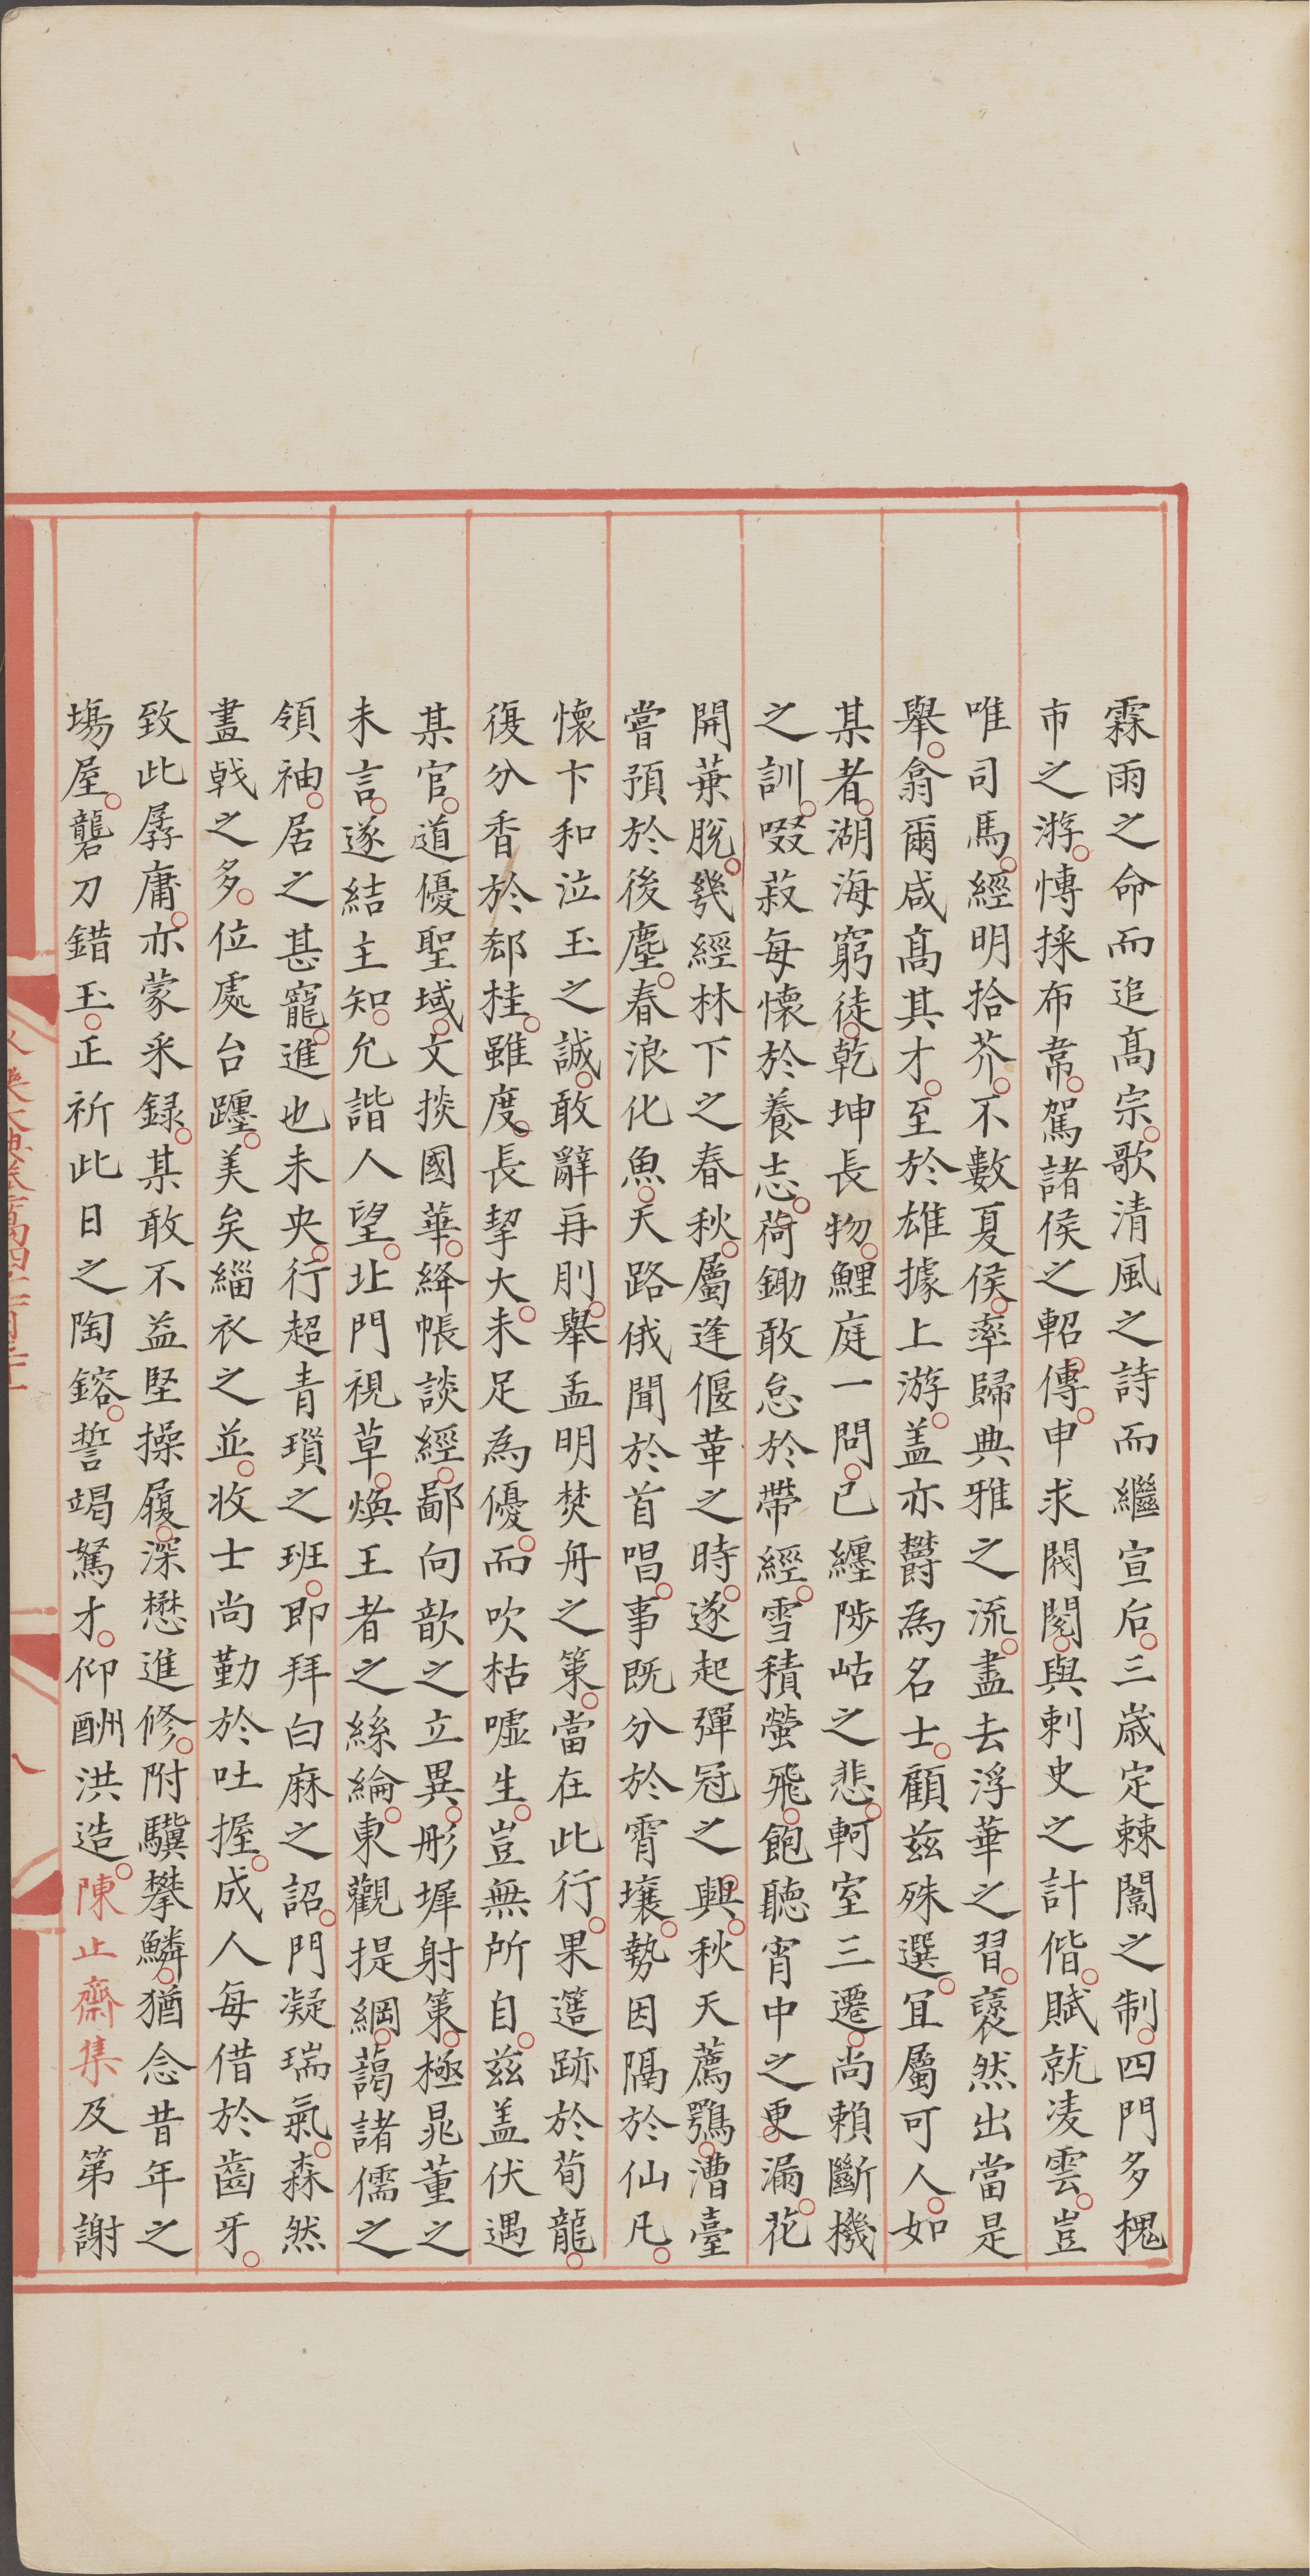 霖雨之命而追髙宗歌清風之詩而繼宣后三歳定棘闈之制四門多槐
市之游慱採布韋駕諸侯之軺傳申求閥閱與刺史之計偕賦就凌雲豈
唯司馬經明拾芥不數夏侯率歸典雅之流盡去浮華之習褎然出當是
舉翕爾咸髙其才至於雄據上游盖亦欝為名士顧兹殊選冝屬可人如
某者湖海窮徒乾坤長物鯉庭一問已纏陟岵之悲軻室三遷尚賴斷機
之訓啜菽每懷於養志荷鋤敢怠於帶經雪積螢飛飽聽宵中之更漏花
開葉脫幾經林下之春秋屬逢偃革之時遂起彈冠之興秋天薦鶚漕臺
嘗預於後塵春浪化魚天路俄聞於首唱事既分於霄壤勢因隔於仙凡
懷卞和泣玉之誠敢辭再刖舉孟明焚舟之策當在此行果簉跡於荀龍
復分香於郄桂雖度長挈大未足為優而吹枯噓生豈無所自兹盖伏遇
某官道優聖域文掞國華絳帳談經鄙向歆之立異彤墀射策極晁董之
未言遂結主知允諧人望北門視草煥王者之絲綸東觀提綱藹諸儒之
領袖居之甚寵進也未央行超青瑣之班即拜白麻之詔門凝瑞氣森然
畫戟之多位處台躔美矣緇衣之並收士尚勤於吐握成人每借於齒牙
致此孱庸亦蒙采録某敢不益堅操履深懋進修附驥攀鱗猶念昔年之
塲屋礱刀錯玉正祈此日之陶鎔誓竭駑才仰酬洪造陳止齋集及第謝